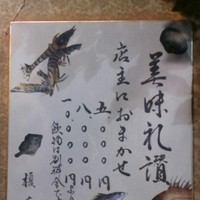 美味礼讃
店主におまかせ
五、〇〇〇円
八、〇〇〇円
一〇、〇〇〇円
飲物は別料金で